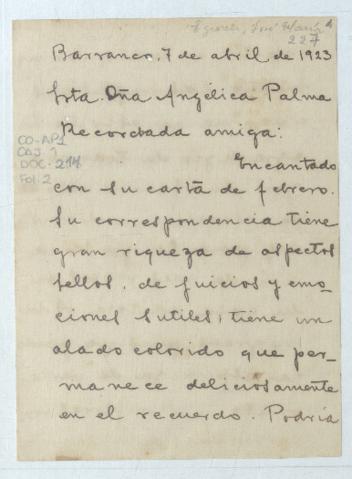 Eguren, José María
227
Barranco, 7 de abril de 1923
Srta. Dña Angélica Palma
Recordada amiga:
CO-AP1
CAJ. 1
DOC. 214
Fol. 2
Encantado
con su carta de febrero.
Su correspondencia tiene
gran riqueza de aspectos
bellos, de juicios y emo-
ciones sutiles; tiene un
alado colorido que per-
manece deliciosamente
en el recuerdo. Podría